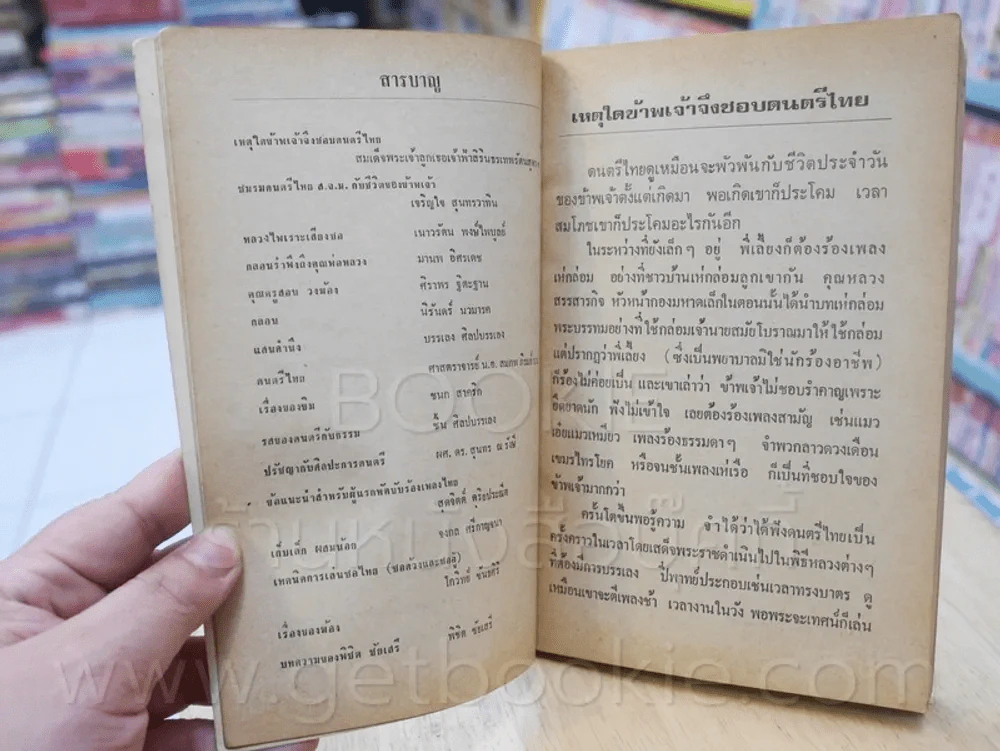 สารบาญ
เหตุใดข้าพเจ้าจึงชอบดนตรีไทย
สมเด็จพระเจ้าลูกเธอเจ้าฟ้าสิรินธรเทพรัตนสุดา
ชมรมดนตรีไทย ส.จ.ม. กับชีวิตของข้าพเจ้า
เจริญใจ สุนทรวาทิน
หลวงไพเราะเสียงซอ เนาวรัตน พงษ์ไพบูลย์
กลอนรำพึงถึงคุณพ่อหลวง มานพ อิศรเดช
คุณครูสอน วงฆ้อง ศิราพร ฐิตะฐาน
กลอน นิรันดร์ นวมารค
แสนคำนึง บรรเลง ศิลปบรรเลง
ดนตรีไทย ศาสตราจารย์ น.อ. สมภพ
เรื่องของขิม ชนก สาคริก
รสของดนตรีกับธรรม ชิ้น ศิลปบรรเลง
ปรัชญากับศิลปะการดนตรี ผศ. ดร. สุนทร ณ รังษี
ข้อแนะนำสำหรับผู้แรกหัดขับร้องเพลงไทย
สุดจิตต์ ดุริยประณีต
เก็บเล็ก ผสมน้อย จงกล ศรีกาญจนา
เทคนิคการเล่นซอไทย (ซอด้วงและซออู้)
โกวิทย์ ขันธศิริ
เรื่องของฆ้อง พิชิต ชัยเสรี
บทความของพิชิต ชัยเสรี
เหตุใดข้าพเจ้าจึงชอบดนตรีไทย
ดนตรีไทยดูเหมือนจะพัวพันกับชีวิตประจำวัน
ของข้าพเจ้าตั้งแต่เกิดมา พอเกิดเขาก็ประโคม เวลา
สมโภชเขาก็ประโคมอะไรกันอีก
ในระหว่างที่ยังเล็กๆ อยู่ พี่เลี้ยงก็ต้องร้องเพลง
เห่กล่อม อย่างที่ชาวบ้านเห่กล่อมลูกเขากัน คุณหลวง
สรรสารกิจ หัวหน้ากองมหาดเล็กในตอนนั้นได้นำบทเห่กล่อม
พระบรรทมอย่างที่ใช้กล่อมเจ้านายสมัยโบราณมาให้ใช้กล่อม
แต่ปรากฏว่าพี่เลี้ยง (ซึ่งเป็นพยาบาลมิใช่นักร้องอาชีพ)
ก็ร้องไม่ค่อยเป็น และเขาเล่าว่า ข้าพเจ้าไม่ชอบรำคาญเพราะ
ยืดยาดนัก ฟังไม่เข้าใจ เลยต้องร้องเพลงสามัญ เช่นแมว
เอ๋ยแมวเหมียว เพลงร้องธรรมดาๆ จำพวกลาวดวงเดือน
เขมรไทรโยค หรือจนชั้นเพลงเห่เรือ ก็เป็นที่ชอบใจของ
ข้าพเจ้ามากกว่า
ครั้นโตขึ้นพอรู้ความ จำได้ว่าได้ฟังดนตรีไทยเป็น
ครั้งคราวในเวลาโดยเสด็จพระราชดำเนินไปในพิธีหลวงต่างๆ
ที่ต้องมีการบรรเลง ปี่พาทย์ประกอบเช่นเวลาทรงบาตร ดู
เหมือนเขาจะตีเพลงช้า เวลางานในวัง พอพระจะเทศน์ก็เล่น
BOOKIE
ร้านหนังสือบุ๊คกี้
www.getbookie.com